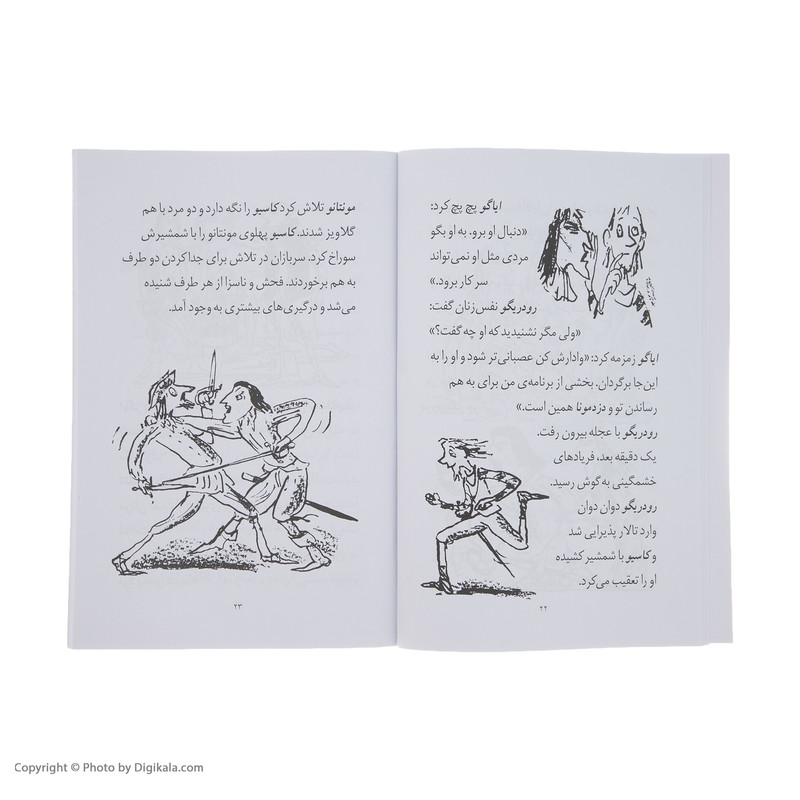 ایاگو پچ پچ کرد:
«دنبال او برو. به او بگو
مردی مثل او نمی‌تواند
سر کار برود.»
رودریگو نفس‌زنان گفت:
«ولی مگر نشنیدید که او چه گفت؟»
ایاگو زمزمه کرد: «وادارش کن عصبانی‌تر شود و او را به
این‌جا برگردان. بخشی از برنامه‌ی من برای به هم
رساندن تو و دزدمونا همین است.»
رودریگو با عجله بیرون رفت.
یک دقیقه بعد، فریادهای
خشمگینی به گوش رسید.
رودریگو دوان دوان
وارد تالار پذیرایی شد
و کاسیو با شمشیر کشیده
او را تعقیب می‌کرد.
۲۲
مونتانو تلاش کرد کاسیو را نگه دارد و دو مرد با هم
گلاویز شدند. کاسیو پهلوی مونتانو را با شمشیرش
سوراخ کرد. سربازان در تلاش برای جدا کردن دو طرف
به هم برخوردند. فحش و ناسزا از هر طرف شنیده
می‌شد و درگیری‌های بیشتری به وجود آمد.
۲۳
Copyright © Photo by Digikala.com